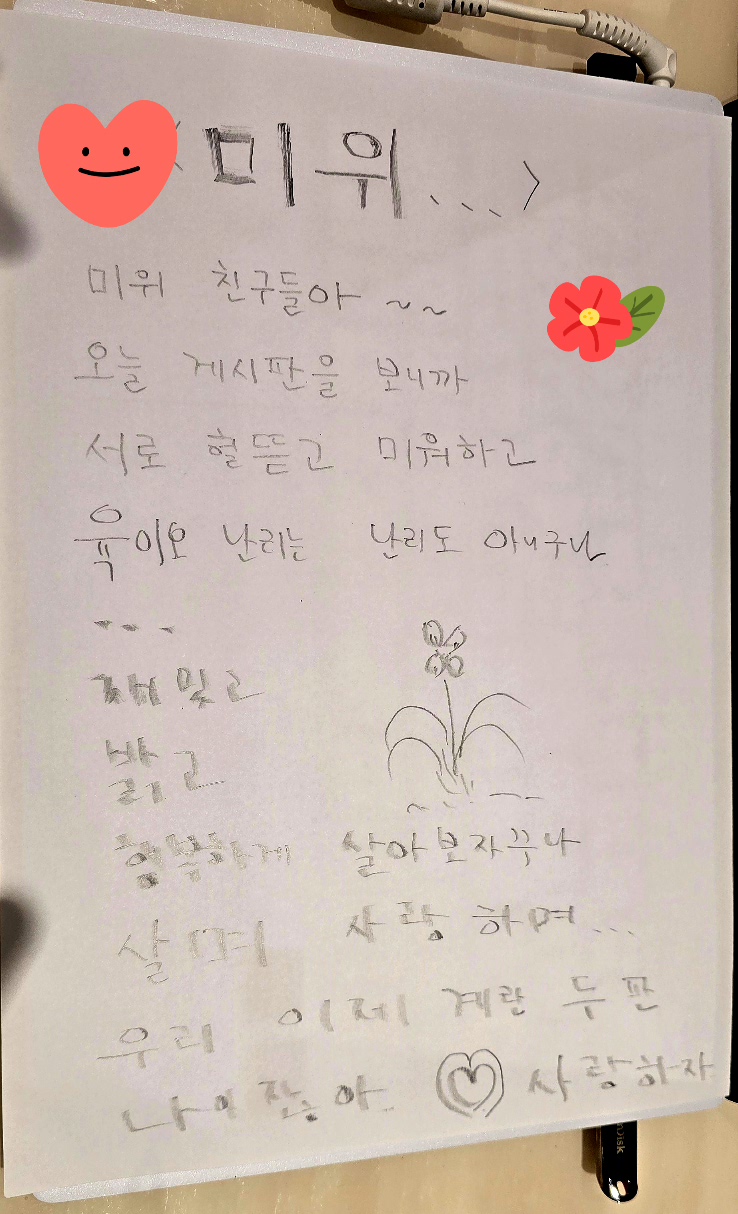 <미위...>
미위 친구들아 ~~
오늘 게시판을 보니까
서로 헐뜯고 미워하고
육이오 난리는 난리도 아니구나
...
재밌고
밝고
행복하게 살아보자꾸나
살며 사랑하며...
우리 이제 계란 두판
나이잖아 사랑하자